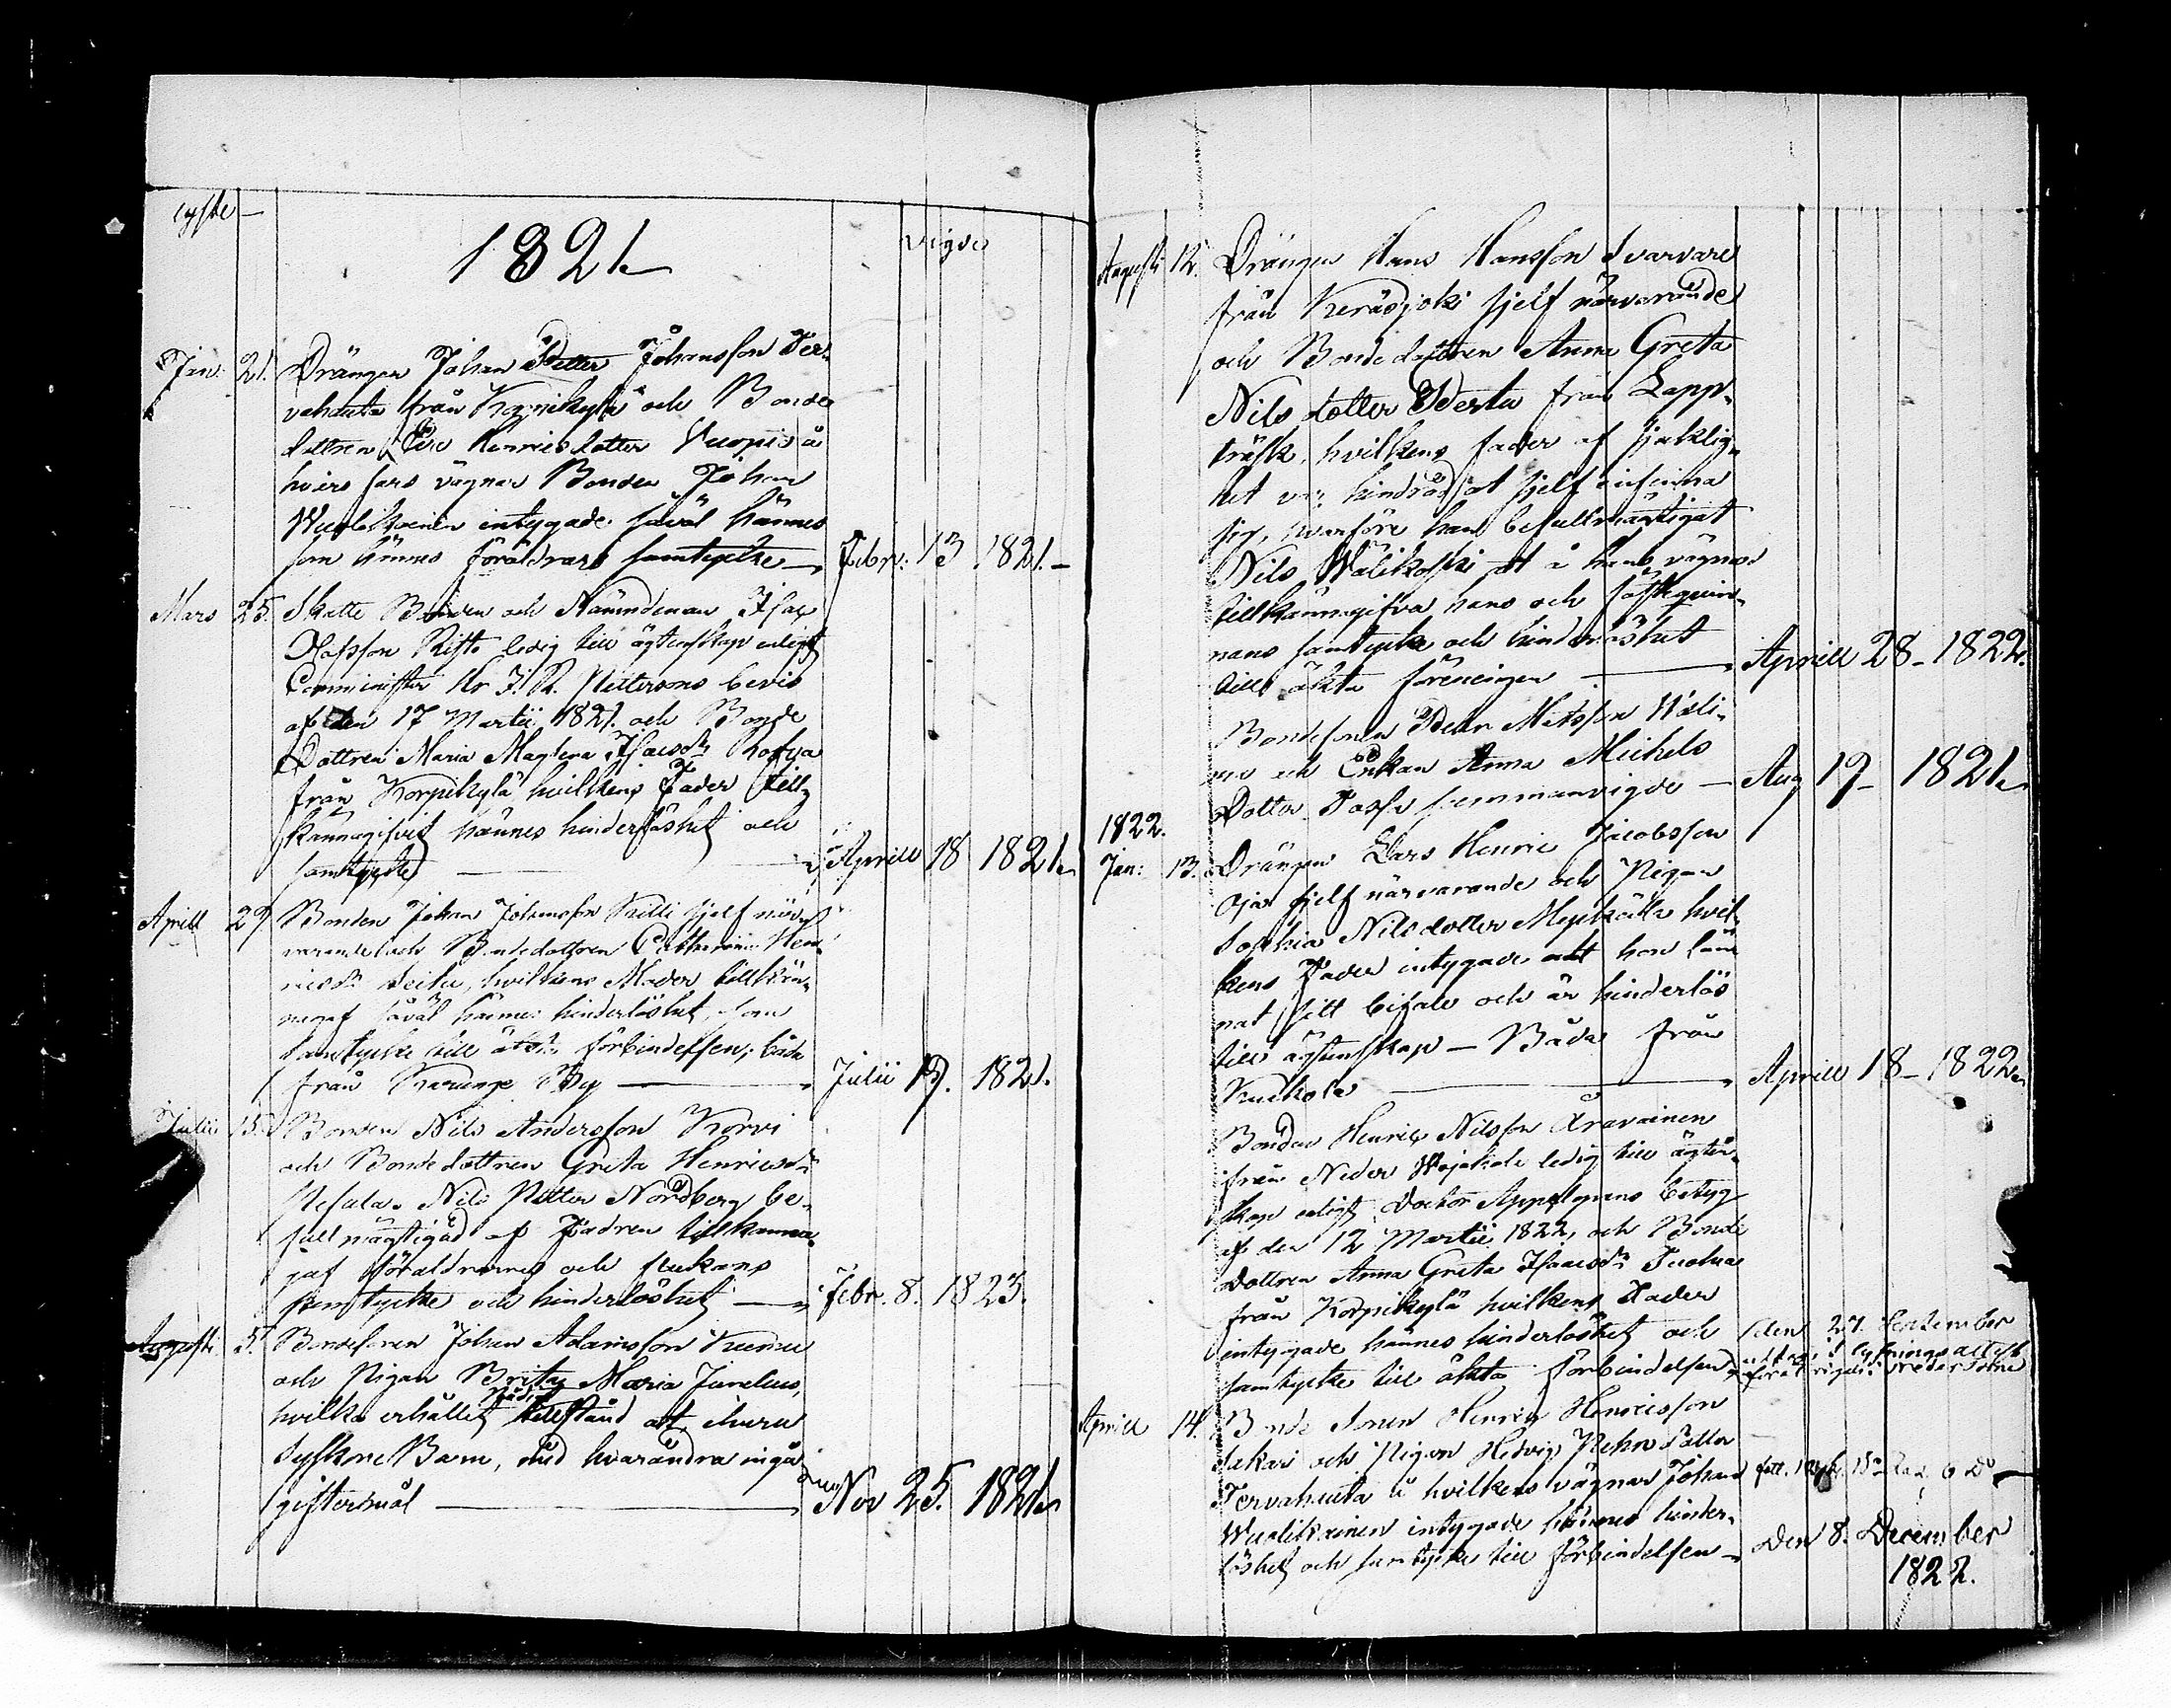 lyste
1821
vigde
Jan: 21. Drängen Johan Petter Johansson Ter-
vahauta från Korpikylä och Bonde
dottren Eva Henricsdotter Vuopio å
hvars fars vägnar Bonden Johan
Wuolikainen intygade såväl hännes
som hännes föräldrars samtycke Febr: 13 1821.
Mars 25. Skatte Bonden och Nämndeman Isac
Olofsson Risto ledig till ägtenskap enligt
Comminister Hr J. R. Pettersons bevis
af den 17 Martii 1821. och Bonde
Dottren Maria Maglena Isacsdr
från Korpikylä hvilkens Fader till-
kännagifvit hännes hinderlöshet och
samtycke Aprill 18 1821.
Aprill 29 Bonden Johan Johansson Killi sjelf när-
varande och Bondedottren Catharina Hen-
ricsdr hvilkens Moder tillkän-
nagaf såväl hännes hinderlöshet, som
samtycke till äkta förbindelsen; båda
från Karunge By Julii 19. 1821.
Julii 15. Bonden Nils Andersson Korvi
och Bonde dottren Greta Henricsdr
Nils Petter Nordberg be-
fullmägtigad af Fadren tillkänna-
gaf föräldrarnes och flickans
samtycke och hinderlöshet Febr. 8. 1823.
Augusti 5. Bondesonen Johan Adamsson Kumu
och Pigan Brita Maria Junelius,
hvilka erhållit Nådigt tillstånd at, ehuru
Syskone Barn, med hvarandra ingå
giftermål Nov 25. 1821.
Augusti 12. Drängen Hans Hansson Svarvare
från Keräsjoki sjelf närvarande
och Bonde dottren Anna Greta
Nils dotter Perta från Lapp-
träsk, hvilkens fader af sjuklig-
het var hindrad at sjelf infinna
sig, hvarföre han befullmägtigat
Nils Wälikoski at å hans vägnar
tillkännagifva hans och fästeqvin-
nans samtycke och hinderlöshet
till äkta föreningen Aprill 28 - 1822.
Bondesonen Pehr Matsson Wäli-
maa och Enkan Anna Michels
Dotter sammanvigde Aug 19 - 1821.
1822.
Jan: 13. Drängen Lars Henric Jacobsson
Oja sjelf närvarande och Pigan
Sophia Nilsdotter hvil-
kens Fader intygade att hon läm-
nat sitt bifall och är hinderlös
till ägtenskap - Båda från
Kukkola Aprill 18 - 1822.
Bonden Henric Nilsson Aravainen
från Neder Wojakala ledig till ägten-
skap enligt Doctor Appelgrens betyg
af den 12 Martii 1822, och Bonde
Dottren Anna Greta Isaacsdr
från Korpikylä hvilkens Fader
intygade hännes hinderlöshet och den 27. September
samtycke till äkta förbindelsen lysningsattest
Aprill 14. Bonde Sonen Henric Henricsson
och Pigan Hedvig Pehrsdotter
Tervahauta å hvilkens vägnar Johan
Wuolikainen intygade hännes hinder-
löshet och samtycke till förbindelsen Den 8. December
1822.